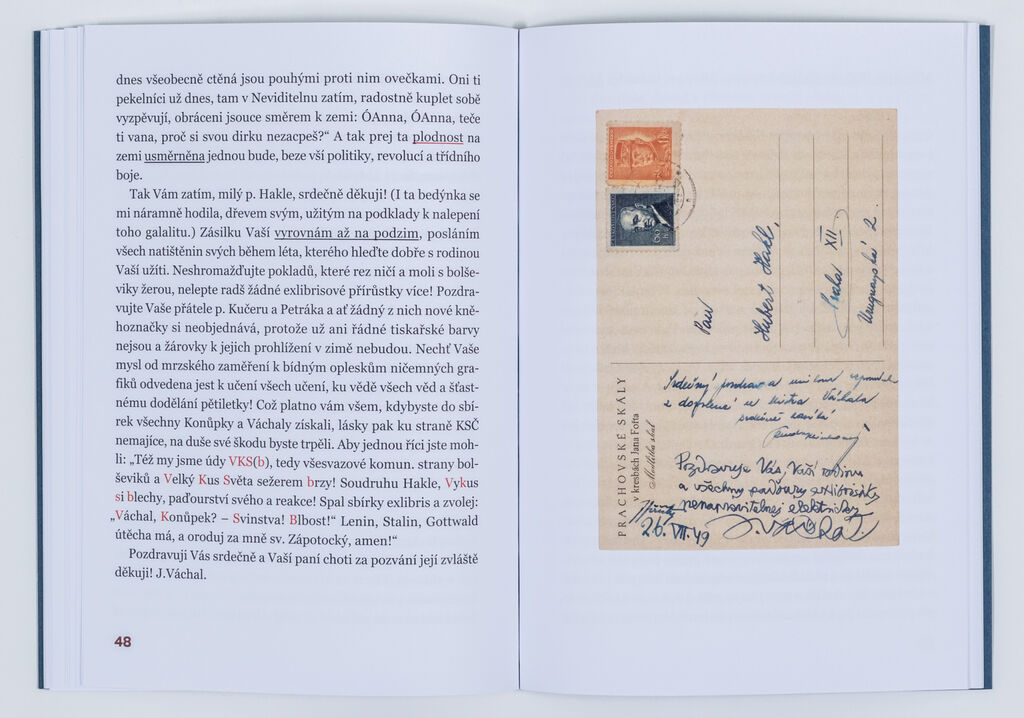 dnes všeobecně ctěná jsou pouhými proti nim ovečkami. Oni ti
pekelníci už dnes, tam v Neviditelnu zatím, radostně kuplet sobě
vyzpěvují, obráceni jsouce směrem k zemi: ÓAnna, ÓAnna, teče
ti vana, proč si svou dirku nezacpeš?“ A tak prej ta plodnost na
zemi usměrněna jednou bude, beze vší politiky, revolucí a třídního
boje.
Tak Vám zatím, milý p. Hakle, srdečně děkuji! (I ta bedýnka se
mi náramně hodila, dřevem svým, užitým na podklady k nalepení
toho galalitu.) Zásilku Vaší vyrovnám až na podzim, posláním
všech natištěnin svých během léta, kterého hleďte dobře s rodinou
Vaší užíti. Neshromažďujte pokladů, které rez ničí a moli s bolše-
viky žerou, nelepte radš žádné exlibrisové přírůstky více! Pozdra-
vujte Vaše přátele p. Kučeru a Petráka a ať žádný z nich nové kně-
hoznačky si neobjednává, protože už ani řádné tiskařské barvy
nejsou a žárovky k jejich prohlížení v zimě nebudou. Nechť Vaše
mysl od mrzského zaměření k bídným opleskům ničemných gra-
fiků odvedena jest k učení všech učení, ku vědě všech věd a šťast-
nému dodělání pětiletky! Což platno vám všem, kdybyste do sbí-
rek všechny Konůpky a Váchaly získali, lásky pak ku straně KSČ
nemajíce, na duše své škodu byste trpěli. Aby jednou říci jste moh-
li: „Též my jsme údy VKS(b), tedy všesvazové komun. strany bol-
ševiků a Velký Kus Světa sežerem brzy! Soudruhu Hakle, Vykus
si blechy, paďourství svého a reakce! Spal sbírky exlibris a zvolej:
„Váchal, Konůpek? – Svinstva! Blbost!“ Lenin, Stalin, Gottwald
útěcha má, a oroduj za mně sv. Zápotocký, amen!“
Pozdravuji Vás srdečně a Vaší paní choti za pozvání její zvláště
děkuji! J.Váchal.
48
Pan
Hubert Hakl,
Praha XII
Uruguayská 2.
PRACHOVSKÉ SKÁLY
v kresbách Jana Fofta
Srdečný pozdrav a
z dovolené u Mistra Váchala
Pozdravuje Vás, Vaši rodinu
a všechny paďoury exlibrisáky,
nenapravitelnej
26. VII. 49 J. Váchal